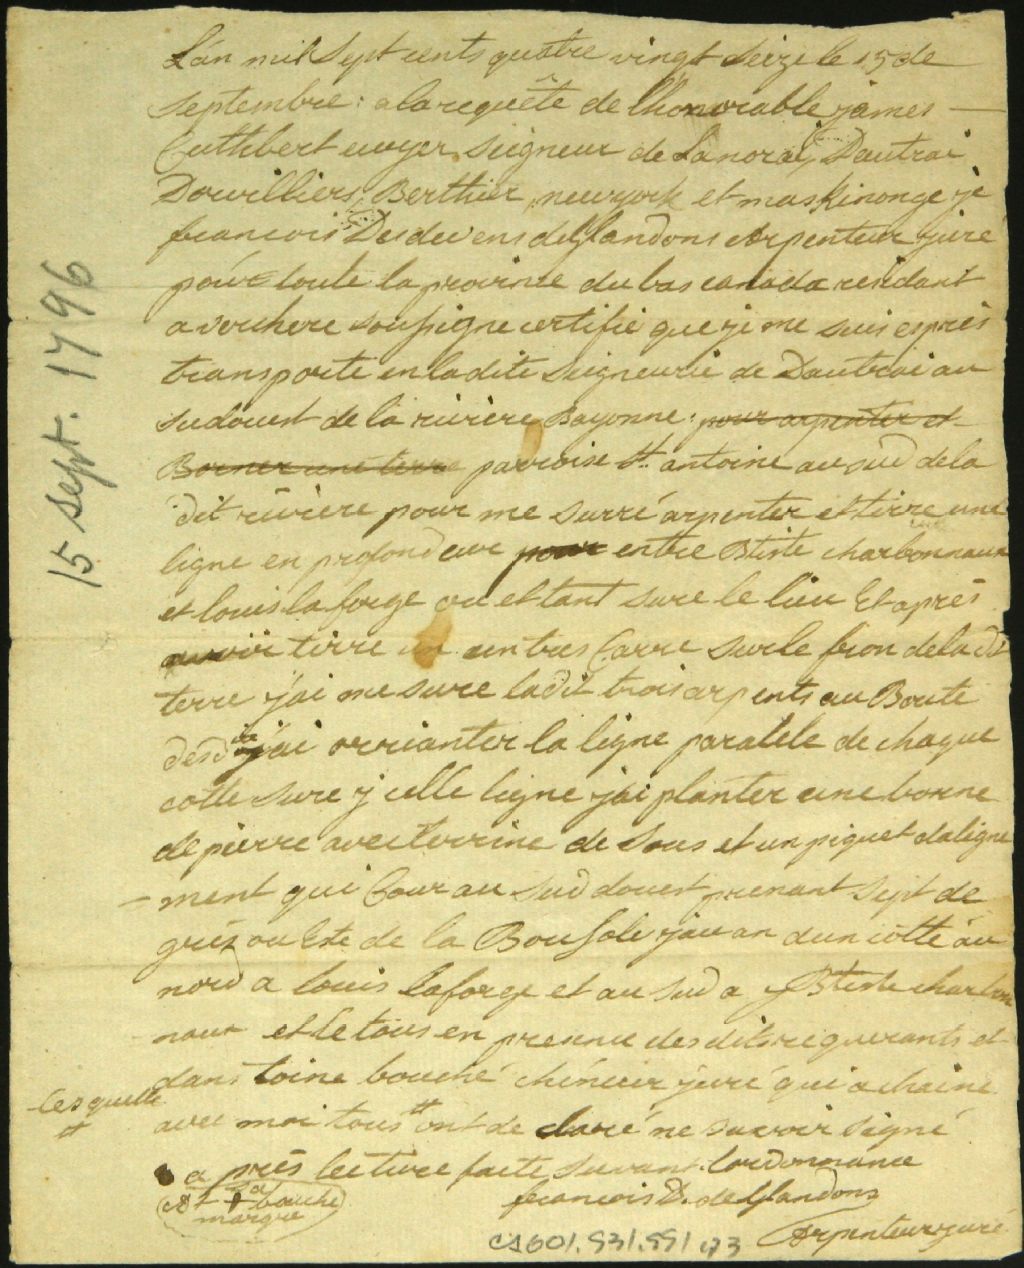 Lán mil Sept cents quatre vingt Seize le 15 de
Septembre : a la requête de lhonorable james
Cuthbert ecuyer Seigneur de Lanorai, Dautrai
Dorvilliers, Berthier, newyork et maskinonge je
francois Desdevens deGlandons Arpenteur juré
pour toute la province du bas canada residant
a verchere Soussigne certifie que je me suis esprès
transporte en la dite Seigneurie de Dautrai au
sudouest de la rivière Bayonne : pour arpenter et
Borner une terre parroise St. antoine au sud de la
dit rivière pour me surré arpenter et tirre une
ligne en profondeur pour entre Btiste charbonnaux
et louis laforge ou ettant sure le lieu Et après
avoir tirre un cuntres Carre sur le fron de la dit
terre j'ai mesure ladit trois arpents au Boute
desd j'ai orrianter la ligne paralele de chaque
cotte sure y celle ligne j'ai planter une borne
de pierre avec terrine de sous et un piquet daligne
ment qui Cour au Sud douest prenant Sept de
gréz ou Este de la Bousole jauan dun côtté au
nord a louis laforge et au sud a Btiste charbon
naux et le tous en presence des dits requerants et
dans toine bouché cheneur juré qui a chainé
Lesquelle
avec moi tous ont de claré ne savoir signé
a près lecture faite suivant lordonnance
françois D. de Glandons
At + bouche
marque
Arpenteur juré
15 sept. 1796
CA601, S31, SS1